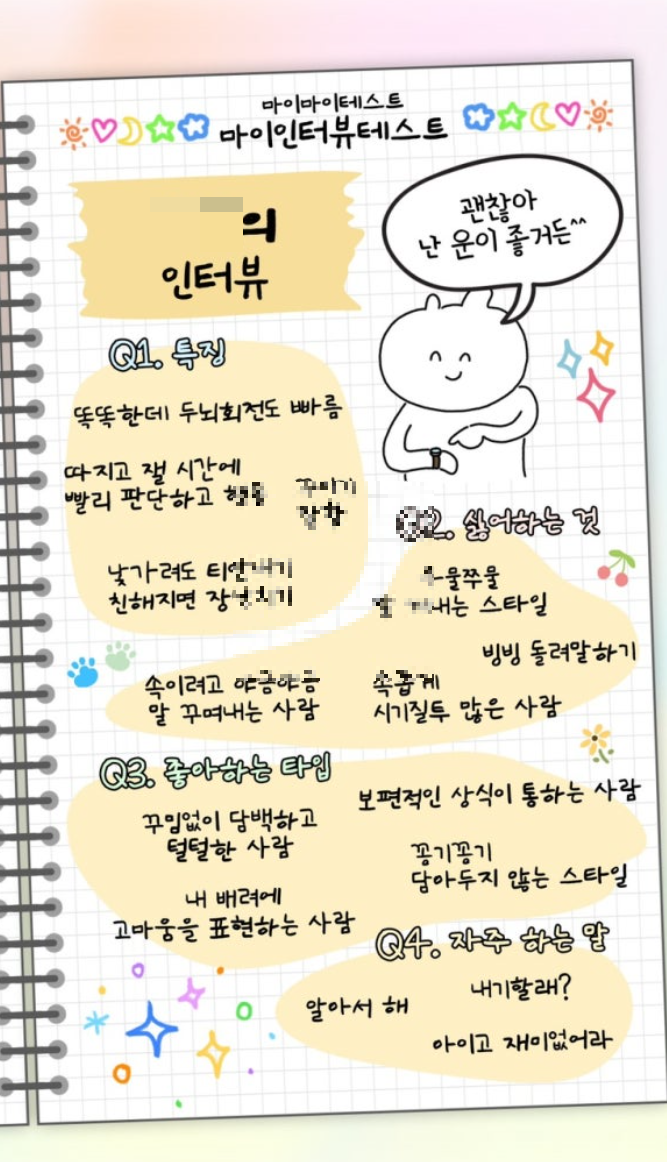 마이마이테스트
마이인터뷰테스트
의
인터뷰
괜찮아
난 운이 좋거든^^
Q1. 특징
똑똑한데 두뇌회전도 빠름
따지고 잴 시간에
빨리 판단하고 행동
꾸미기
잘함
낯가려도 티안내기
친해지면 장난치기
Q2. 싫어하는 것
우물쭈물
말 내는 스타일
빙빙 돌려말하기
속이려고 야금야금
말 꾸며내는 사람
속좁게
시기질투 많은 사람
Q3. 좋아하는 타입
꾸밈없이 담백하고
털털한 사람
보편적인 상식이 통하는 사람
꽁기꽁기
담아두지 않는 스타일
내 배려에
고마움을 표현하는 사람
Q4. 자주 하는 말
알아서 해
내기할래?
아이고 재미없어라